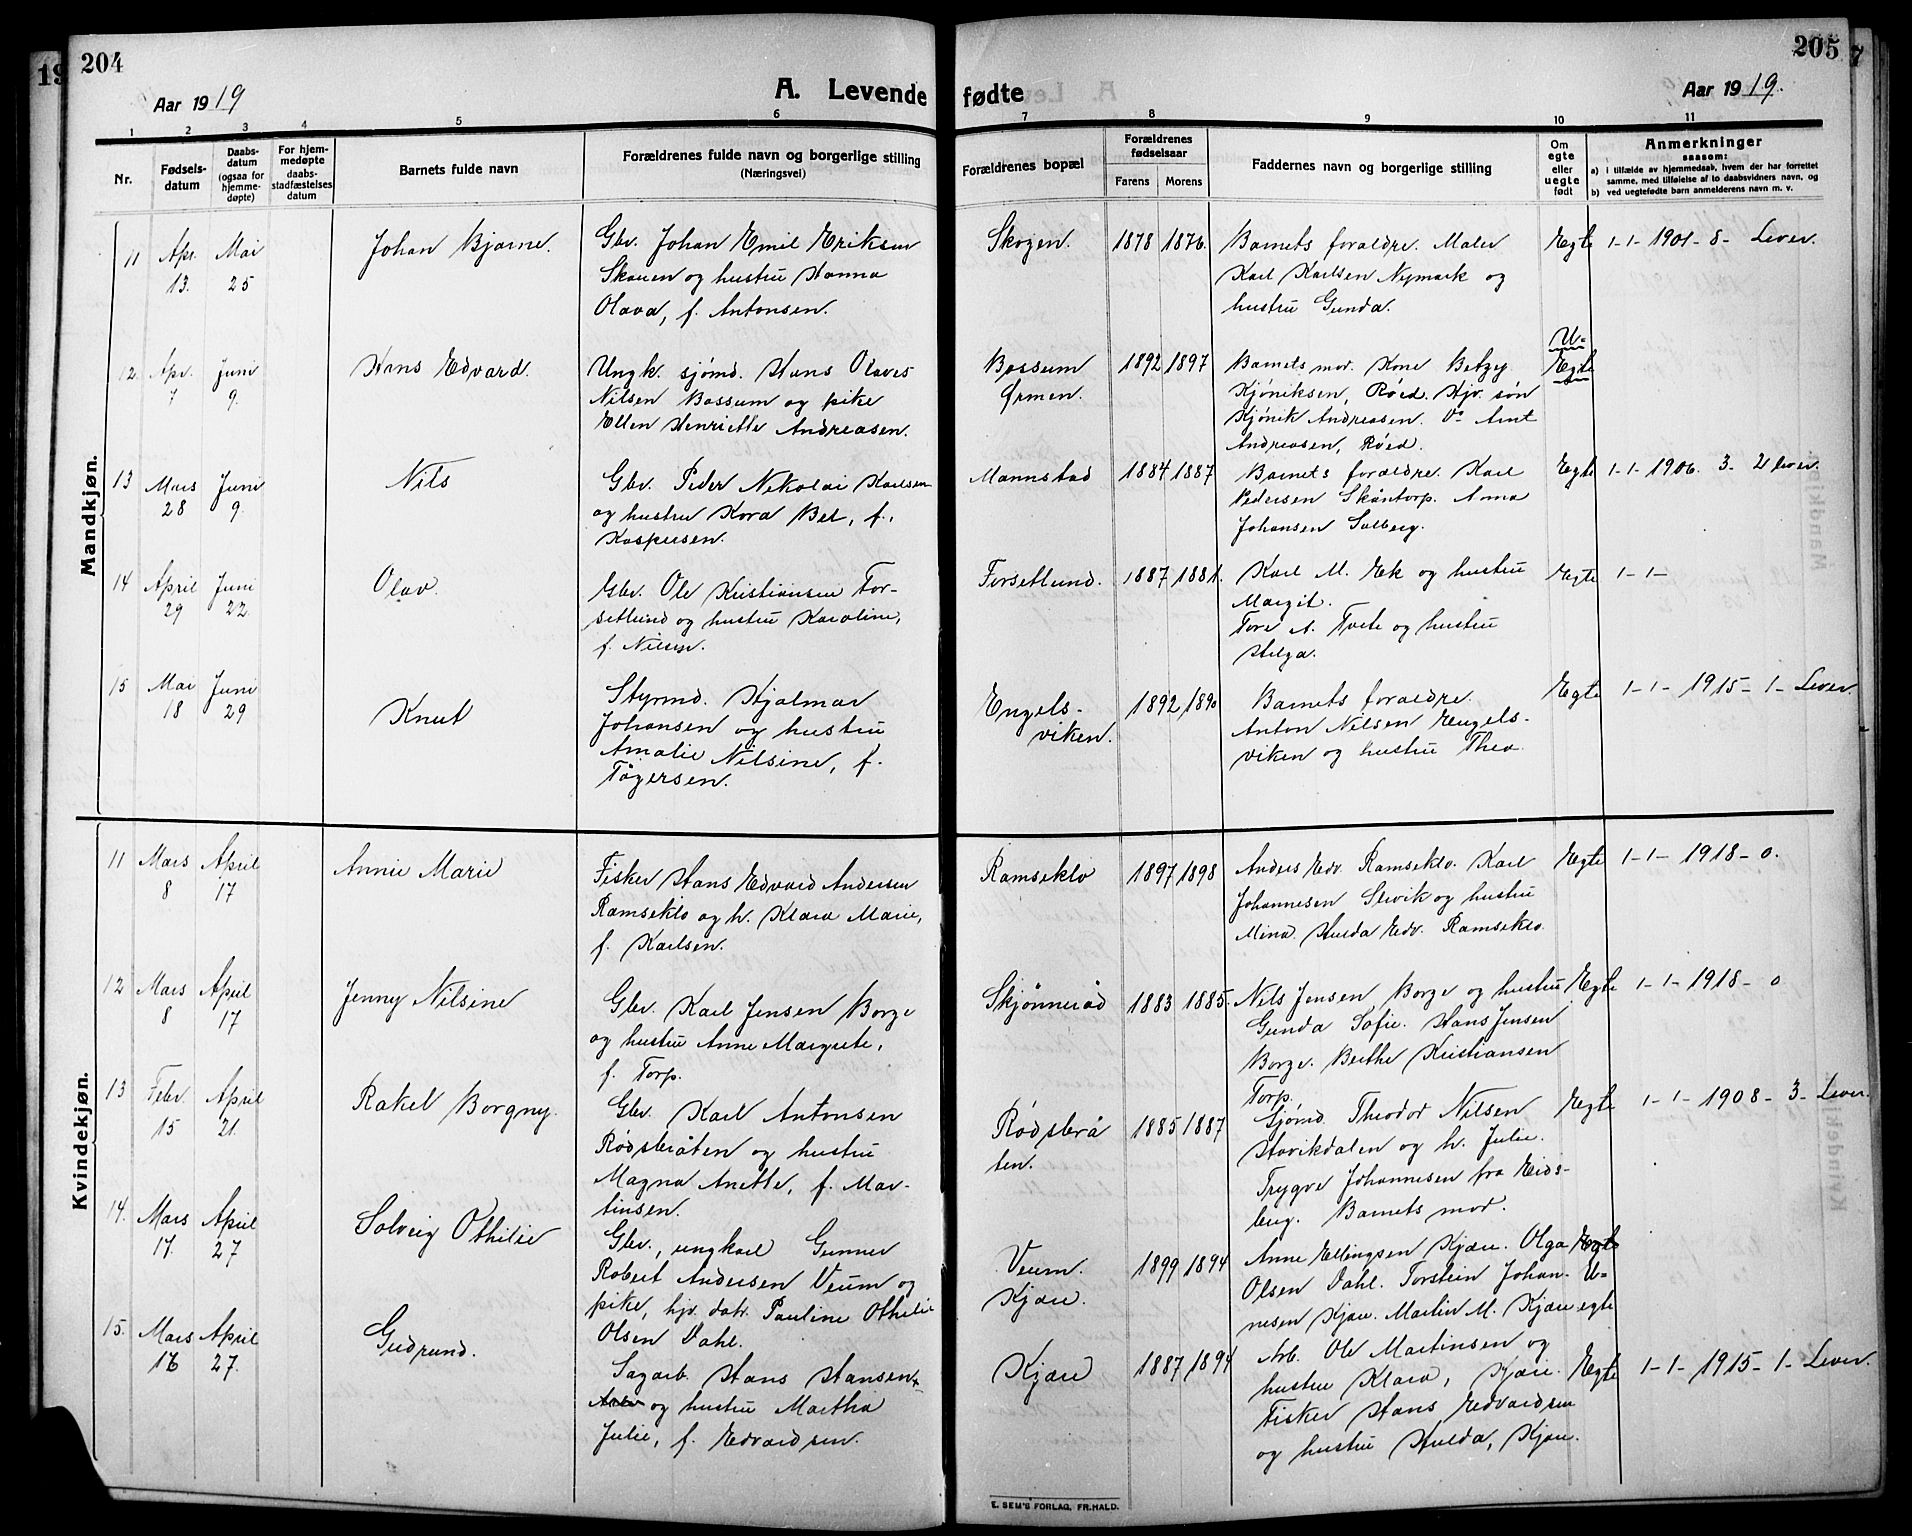 204
Aar 1919
A. Levende
1
2
3
4
5
6
Nr.
Fødsels-
datum
Daabs-
datum
(ogsaa for
hjemme-
døpte)
For hjem-
medøpte
daabs-
stadfæstelses
datum
Barnets fulde navn
Forældrenes fulde navn og borgerlige stilling
(Næringsvei)
Mandkjøn.
11 Apr. 13. Mai 25 Johan Bjarne. Gbr. Johan Emil Eriksen
Skauen og hustru Hanna
Olava, f. Antonsen.
12. Apr. 7 Juni 9. Hans Edvard. Ungk. sjømd. Hans Olaves
Nilsen Bossum og pike
Ellen Henriette Andreasen.
13 Mars 28 Juni 9. Nils Gbr. Peder Nikolai Karlsen
og hustru Kora Bel, f.
Kaspersen.
14 April 29 Juni 22 Olav. Gbr. Ole Kristiansen For-
setlund og hustru Karoline,
f. Nilsen.
15 Mai 18 Juni 29 Knut Styrmd. Hjalmar
Johansen og hustru
Amalie Nilsine, f.
Tøgersen.
Kvindekjøn.
11 Mars 8 April 17 Annie Marie Fisker Hans Edvard Andersen
Ramseklo og h. Klara Marie,
f. Karlsen.
12 Mars 8 April 17 Jenny Nilsine Gbr. Karl Jensen Borge
og hustru Anne Margrete,
f. Torp.
13 Febr. 15 April 21. Rakel Borgny. Gbr. Karl Antonsen
Rødsbråten og hustru
Magna Anette, f. Mar-
tinsen.
14. Mars 17. April 27 Solveig Othilie Gbr., ungkarl Gunner
Robert Andersen Veum og
pike, hjv. datr. Pauline Othilie
Olsen Dahl.
15. Mars 16 April 27. Gudrund. Sagarb. Hans Hansen
og hustru Martha
Julie, f. Edvardsen.
205
fødte
Aar 1919.
7
8
9
10
11
Forældrenes bopæl
Forældrenes
fødselsaar
Farens
Morens
Faddernes navn og borgerlige stilling
Om
egte
eller
uegte
født
Anmerkninger
saasom:
a) i tilfælde av hjemmedaab, hvem der har forrettet
samme, med tilføielse af to daabsvidners navn, og
b) ved uegtefødte barn anmelderens navn m. v.
Skogen. 1878 1876. Barnets foraldre. Maler Egte 1-1- 1901-8- Lever.
Karl Karlsen Nymark og
hustru Gunda.
Bossum 1892 1897 Barnets mor. Kone Betzy U-
Ørmen. Kjøniksen, Røed. Hjv. søn Egte
Kjønik Andreasen. Do Arnt
Andreasen, Røed.
Mannstad 1884 1887 Barnets foraldre. Karl Egte 1-1- 1906. 3- 2 lever.
Pedersen Skåntorp. Anna
Johansen Solberg.
Forsetlund. 1887 1881. Karl M. Ek og hustru Egte 1-1-
Margit.
Tore A. Tvete og hustru
Helga.
Engels- 1892 1890 Barnets foraldre. Egte 1-1- 1915-1-Lever.
viken. Anton Nilsen Engels-
viken og hustru Thea.
Ramseklo 1897 1898 Anders Edv. Ramseklo. Karl Egte 1-1- 1918-0.
Johannesen Slevik og hustru
Mina. Hulda Edv. Ramseklo.
Skjønnerød 1883 1885. Nils Jensen Borge og hustru Egte 1-1- 1918-0
Gunda Sofie. Hans Jensen
Borge. Berthe Kristiansen
Torp.
Rødsbrå 1885 1887 Sjømd. Theodor Nilsen Egte 1-1- 1908-3-Lever.
ten. Havikdalen og h. Julie.
Trygve Johannesen fra Eids-
berg. Barnets mor.
Veum. 1899 1894 Anne Ellingsen Kjære. Olga Egte
Kjære. Olsen Dahl. Torstein Johan- U-
nesen Kjære. Martin M. Kjære egte
Kjære 1887 1894 Arb. Ole Martinsen og Egte 1-1- 1915-1-Lever.
hustru Klara, Kjære.
Fisker Hans Edvardsen
og hustru Hulda, Kjære.
E. SEM'S FORLAG, FR.HALD.